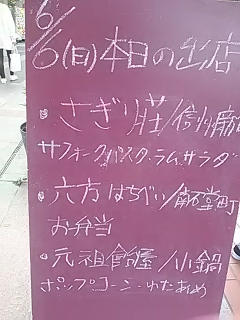 6/6(日)本日の出店
・さぎり荘/信州
サフォークパスタ・ラムサラダ
・六方はちべい/
お弁当
・元祖飴屋/小鍋
ポップコーン・わたあめ